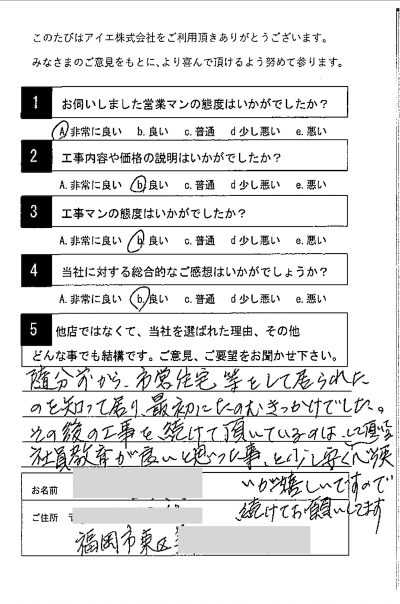 このたびはアイエ株式会社をご利用頂きありがとうございます。
みなさまのご意見をもとに、より喜んで頂けるよう努めて参ります。
1 お伺いしました営業マンの態度はいかがでしたか？
A.非常に良い b.良い c.普通 d少し悪い e.悪い
2 工事内容や価格の説明はいかがでしたか？
A.非常に良い b.良い c.普通 d少し悪い e.悪い
3 工事マンの態度はいかがでしたか？
A.非常に良い b.良い c.普通 d少し悪い e.悪い
4 当社に対する総合的なご感想はいかがでしょうか？
A.非常に良い b.良い c.普通 d少し悪い e.悪い
5 他店ではなくて、当社を選ばれた理由、その他
どんな事でも結構です。ご意見、ご要望をお聞かせ下さい。
随分前から、市営住宅等をして居られた
のを知って居り、最初にたのむきっかけでした。
その後の工事を続けて頂いているのは、
社員教育が良いと思った事、と少し安くして頂
いが嬉しいですので
続けてお願いしてます
お名前
ご住所 〒
福岡市東区